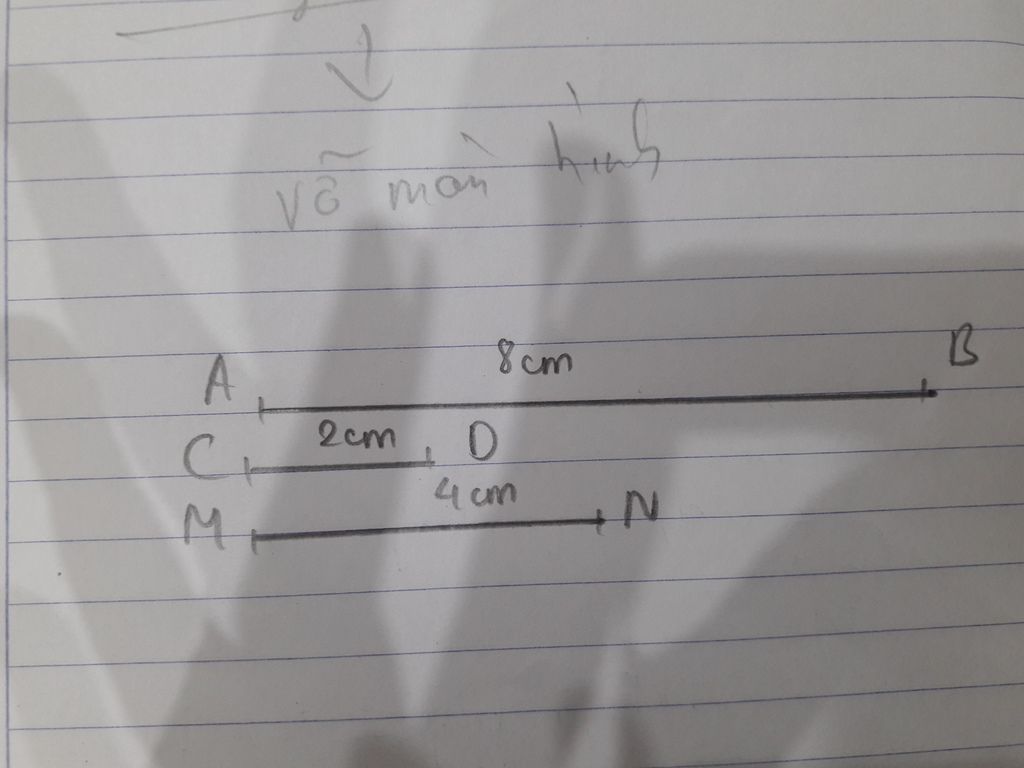 Vẽ màn hình
8cm
A B
2cm
C D
4cm
M N